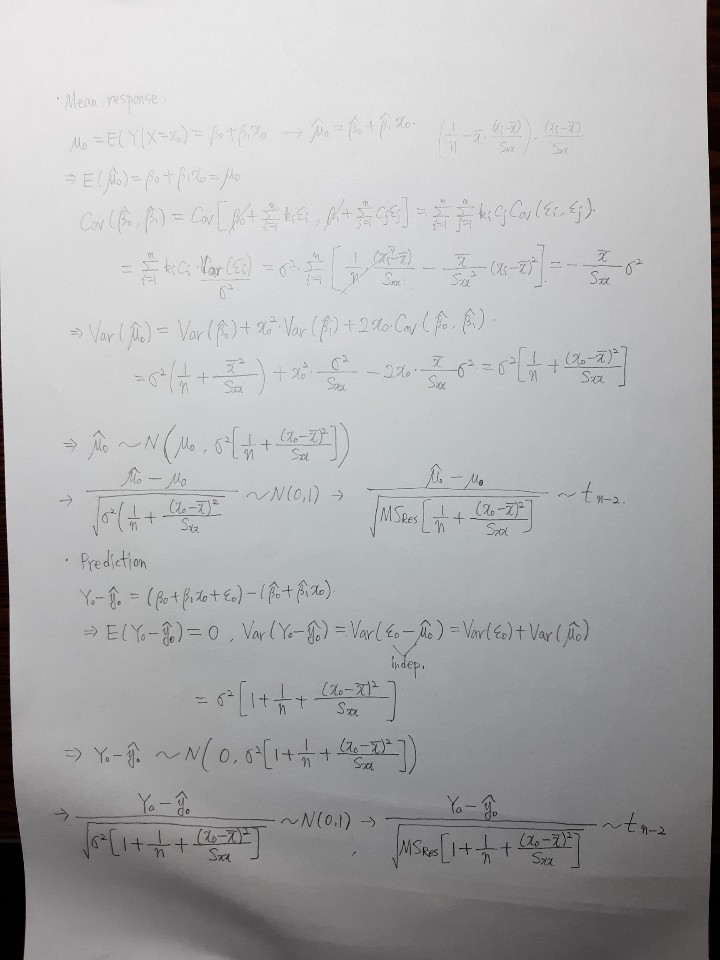 · Mean response.
μ₀ = E(Y|X=x₀) = β₀+β₁x₀ → μ̂₀ = β̂₀+β̂₁x₀. (1/n − x̄·(xᵢ−x̄)/Sxx)·(xᵢ−x̄)/Sxx
⇒ E(μ̂₀) = β₀+β₁x₀ = μ₀
Cov(β̂₀, β̂₁) = Cov[β₀+∑ⁿᵢ₌₁kᵢεᵢ, β₁+∑ⁿⱼ₌₁cⱼεⱼ] = ∑ⁿᵢ₌₁∑ⁿⱼ₌₁kᵢcⱼCov(εᵢ, εⱼ).
= ∑ⁿᵢ₌₁kᵢcᵢ·Var(εᵢ) = σ²·∑ⁿᵢ₌₁[1/n (xᵢ−x̄)/Sxx − x̄/Sxx²(xᵢ−x̄)²] = −x̄/Sxx σ²
σ²
⇒ Var(μ̂₀) = Var(β̂₀)+x₀²·Var(β̂₁)+2x₀·Cov(β̂₀, β̂₁).
= σ²(1/n + x̄²/Sxx) + x₀²·σ²/Sxx − 2x₀·x̄/Sxx σ² = σ²[1/n + (x₀−x̄)²/Sxx]
⇒ μ̂₀ ~ N(μ₀, σ²[1/n + (x₀−x̄)²/Sxx])
→ (μ̂₀ − μ₀)/√(σ²(1/n + (x₀−x̄)²/Sxx)) ~ N(0,1) → (μ̂₀ − μ₀)/√(MSRes[1/n + (x₀−x̄)²/Sxx]) ~ tₙ₋₂.
· Prediction
Y₀−ŷ₀ = (β₀+β₁x₀+ε₀)−(β̂₀+β̂₁x₀)
⇒ E(Y₀−ŷ₀) = 0, Var(Y₀−ŷ₀) = Var(ε₀−μ̂₀) = Var(ε₀)+Var(μ̂₀)
indep.
= σ²[1+1/n + (x₀−x̄)²/Sxx]
⇒ Y₀−ŷ₀ ~ N(0, σ²[1+1/n + (x₀−x̄)²/Sxx])
→ (Y₀−ŷ₀)/√(σ²[1+1/n + (x₀−x̄)²/Sxx]) ~ N(0,1) → (Y₀−ŷ₀)/√(MSRes[1+1/n + (x₀−x̄)²/Sxx]) ~ tₙ₋₂